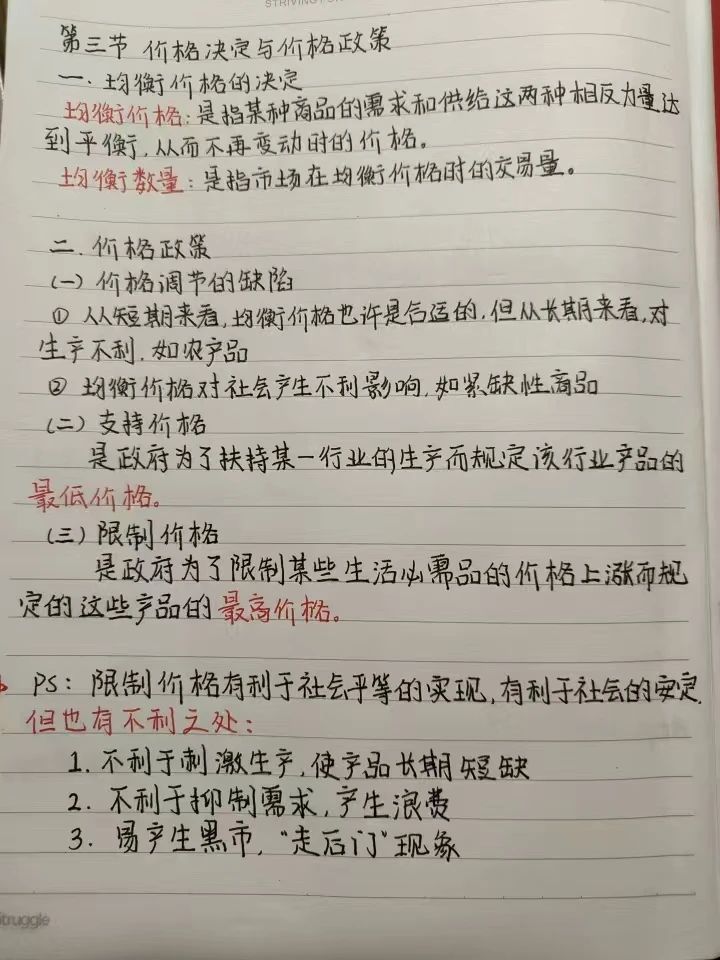 STRIVING FOR
第三节 价格决定与价格政策
一. 均衡价格的决定
均衡价格: 是指某种商品的需求和供给这两种相反力量达
到平衡, 从而不再变动时的价格。
均衡数量: 是指市场在均衡价格时的交易量。
二. 价格政策
(一) 价格调节的缺陷
① 从短期来看, 均衡价格也许是合适的, 但从长期来看, 对
生产不利, 如农产品
② 均衡价格对社会产生不利影响, 如紧缺性商品
(二) 支持价格
是政府为了扶持某一行业的生产而规定该行业产品的
最低价格。
(三) 限制价格
是政府为了限制某些生活必需品的价格上涨而规
定的这些产品的最高价格。
PS: 限制价格有利于社会平等的实现, 有利于社会的安定.
但也有不利之处:
1. 不利于刺激生产, 使产品长期短缺
2. 不利于抑制需求, 产生浪费
3. 易产生黑市, “走后门”现象
truggle